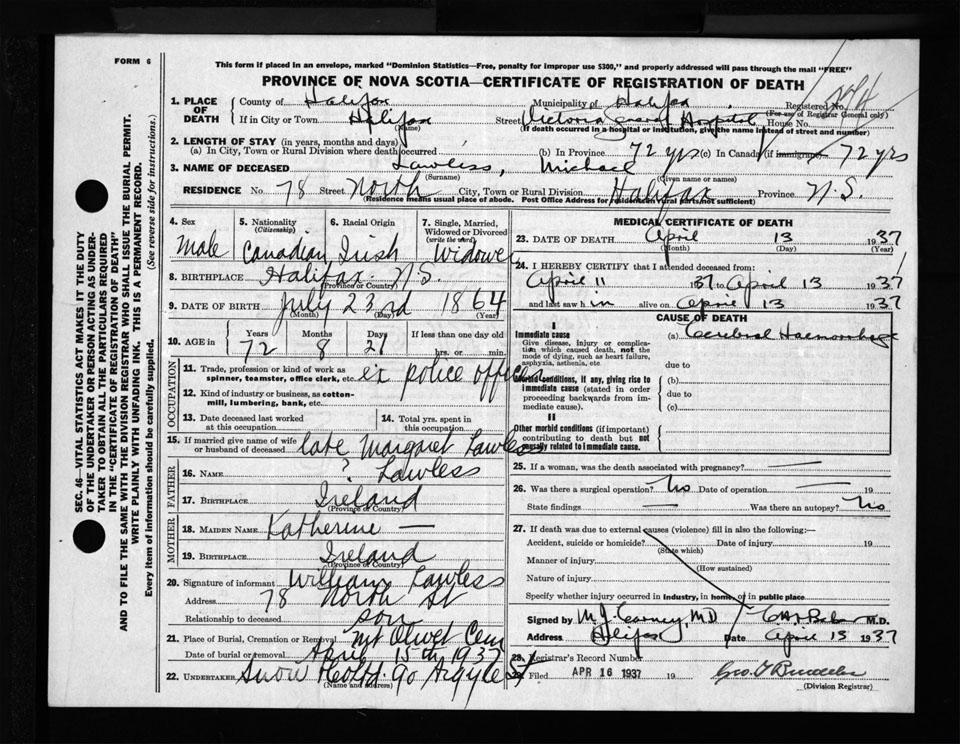 FORM 6
This form if placed in an envelope, marked "Dominion Statistics—Free, penalty for improper use $300," and properly addressed will pass through the mail "FREE"
PROVINCE OF NOVA SCOTIA—CERTIFICATE OF REGISTRATION OF DEATH
1. PLACE OF DEATH County of Halifax Municipality of Halifax Registered No.
(For use of Registrar General only)
If in City or Town Halifax Street Victoria General Hospital House No.
(Name) (If death occurred in a hospital or institution, give the name instead of street and number)
2. LENGTH OF STAY (in years, months and days)
(a) In City, Town or Rural Division where death occurred (b) In Province 72 yrs (c) In Canada (if immigrant) 72 yrs
3. NAME OF DECEASED Lawless, Michael
(Surname) (Given name or names)
RESIDENCE No. 78 Street North City, Town or Rural Division Halifax Province N.S.
(Residence means usual place of abode. Post Office Address for residents in rural parts not sufficient)
4. Sex Male
5. Nationality (Citizenship) Canadian
6. Racial Origin Irish
7. Single, Married, Widowed or Divorced (write the word) Widower
8. BIRTHPLACE Halifax N.S.
(Province or Country)
9. DATE OF BIRTH July 23rd 1864
(Month) (Day) (Year)
10. AGE in Years 72 Months 8 Days 21 If less than one day old hrs. or min.
OCCUPATION
11. Trade, profession or kind of work as spinner, teamster, office clerk, etc. ex police officer
12. Kind of industry or business, as cotton-mill, lumbering, bank, etc.
13. Date deceased last worked at this occupation
14. Total yrs. spent in this occupation
15. If married give name of wife or husband of deceased late Margaret Lawless
FATHER
16. NAME ? Lawless
17. BIRTHPLACE Ireland
(Province or Country)
MOTHER
18. MAIDEN NAME Katherine —
19. BIRTHPLACE Ireland
(Province or Country)
20. Signature of informant William Lawless
Address 78 North St
Relationship to deceased son
21. Place of Burial, Cremation or Removal Mt Olivet Cem
Date of burial or removal April 15th 1937
22. UNDERTAKER Snow 90 Argyle St
(Name and address)
MEDICAL CERTIFICATE OF DEATH
23. DATE OF DEATH April 13 1937
(Month) (Day) (Year)
24. I HEREBY CERTIFY that I attended deceased from:
April 11 1937 to April 13 1937
and last saw h im alive on April 13 1937
CAUSE OF DEATH
I
Immediate cause
Give disease, injury or complication which caused death, not the mode of dying, such as heart failure, asphyxia, asthenia, etc.
(a) Cerebral Haemorrhage
due to
Morbid conditions, if any, giving rise to immediate cause (stated in order proceeding backwards from immediate cause).
(b)
due to
(c)
II
Other morbid conditions (if important) contributing to death but not causally related to immediate cause.
25. If a woman, was the death associated with pregnancy? —
26. Was there a surgical operation? No Date of operation — 19
State findings — Was there an autopsy? No
27. If death was due to external causes (violence) fill in also the following:—
Accident, suicide or homicide? Date of injury 19
(State which)
Manner of injury
(How sustained)
Nature of injury
Specify whether injury occurred in industry, in home, or in public place
Signed by M.J. Carney, MD M.D.
Address Halifax Date April 15 1937
28. Registrar's Record Number
29. Filed APR 16 1937 19
(Division Registrar)
SEC. 46—VITAL STATISTICS ACT MAKES IT THE DUTY
OF THE UNDERTAKER OR PERSON ACTING AS UNDER-
TAKER TO OBTAIN ALL THE PARTICULARS REQUIRED
IN THE "CERTIFICATE OF REGISTRATION OF DEATH"
AND TO FILE THE SAME WITH THE DIVISION REGISTRAR WHO SHALL ISSUE THE BURIAL PERMIT.
WRITE PLAINLY WITH UNFADING INK. THIS IS A PERMANENT RECORD.
Every item of information should be carefully supplied. (See reverse side for instructions.)